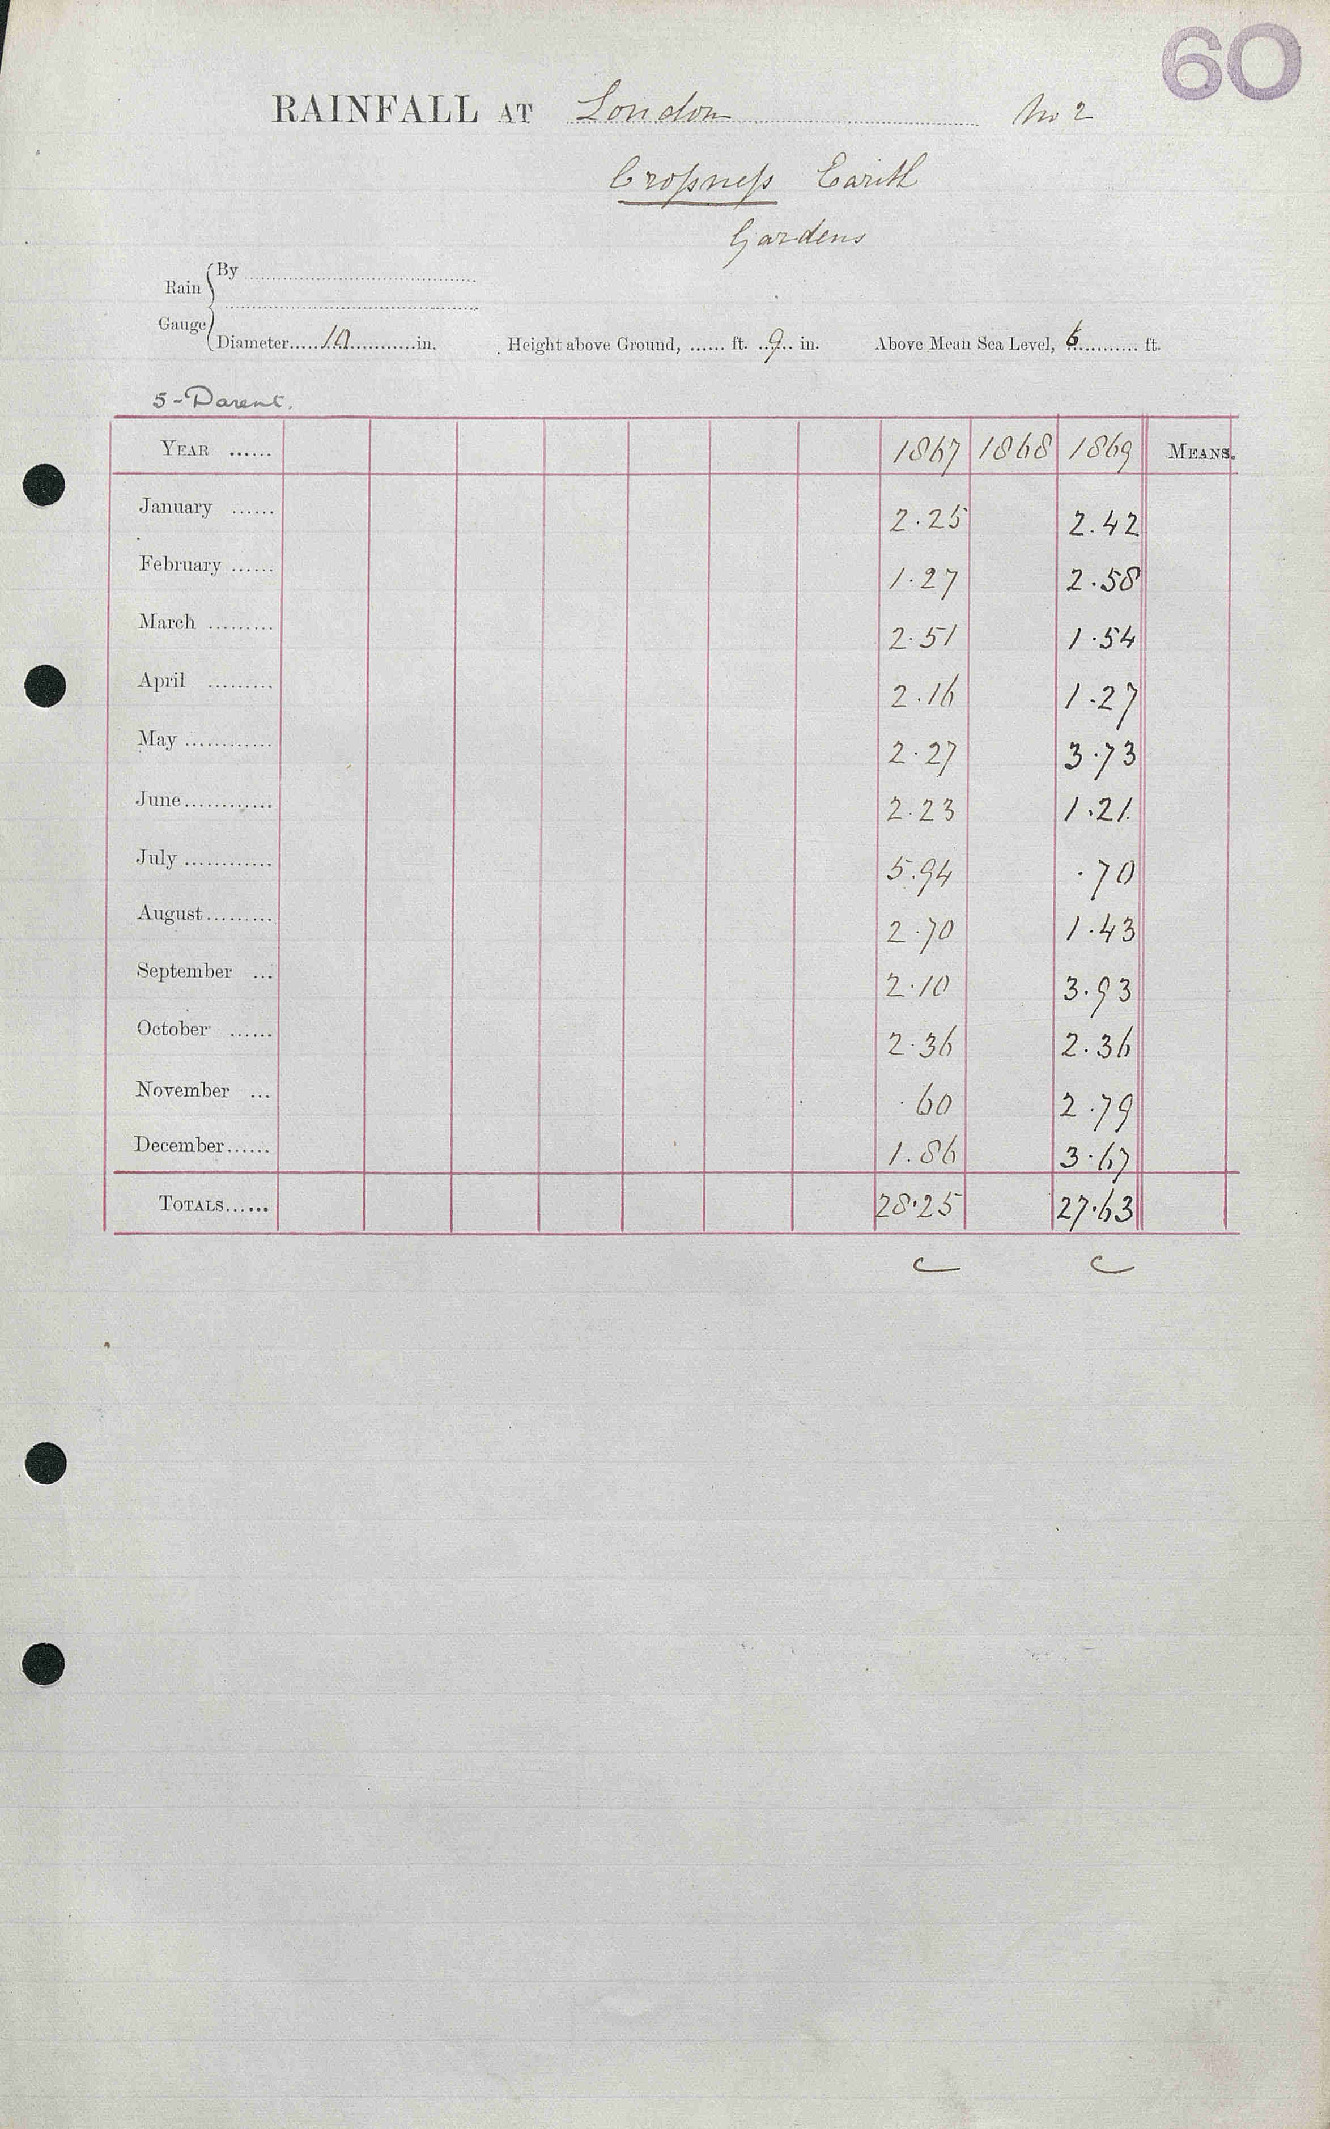 60
RAINFALL AT London No 2
Crossness Earith
Gardens
Rain Gauge
By
Diameter 10 in. Height above Ground, ...... ft. 9 in. Above Mean Sea Level, 6 ft.
5-Darent.
YEAR ...... 1867 1868 1869 MEANS.
January ...... 2.25 2.42
February ...... 1.27 2.58
March ......... 2.51 1.54
April ......... 2.16 1.27
May ............ 2.27 3.73
June............ 2.23 1.21
July ............ 5.94 .70
August......... 2.70 1.43
September ... 2.10 3.93
October ...... 2.36 2.36
November ... .60 2.79
December...... 1.86 3.67
TOTALS...... 28.25 27.63
c c